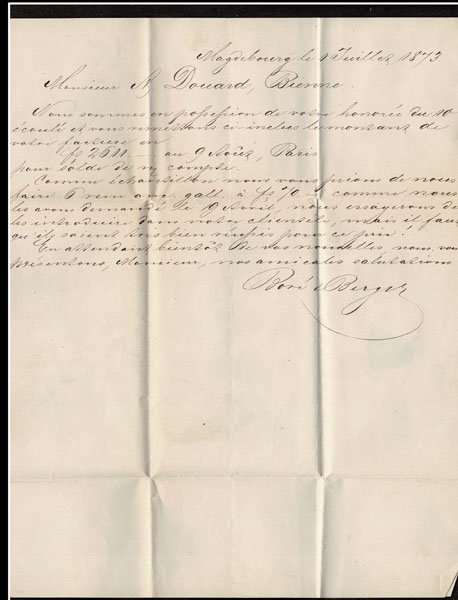 Magdebourg le 1 Juillet 1873.
Monsieur A. Douard, Bienne.
Nous sommes en possession de votre honorée du 10
écoulé et vous remettons ci inclus le montant de
votre facture en
fs 2511.— au 9 Août, Paris
pour solde de compte.
Comme échantillon nous vous prions de nous
faire 1 rem. anc. gall. à fs 70.— comme nous
le avons demandé le 9 Avril, nous essayerons de
les introduire dans notre clientèle, mais il faut
qu'ils soient très bien réussis pour ce prix!
En attendant bientôt de vos nouvelles, nous vous
présentons, Monsieur, nos amicales salutations
Boré & Berger